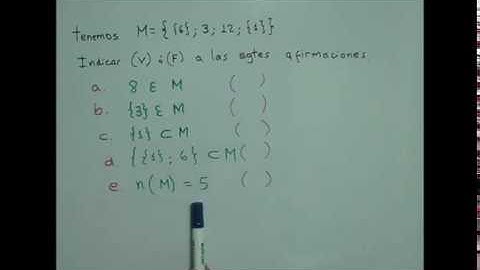 tenemos M = { {6} ; 3 ; 12 ; {1} }
Indicar (V) ó (F) a las sgtes afirmaciones
a. 8 ∈ M ( )
b. {3} ∈ M ( )
c. {1} ⊂ M ( )
d. { {1} ; 6 } ⊂ M ( )
e n(M) = 5 ( )